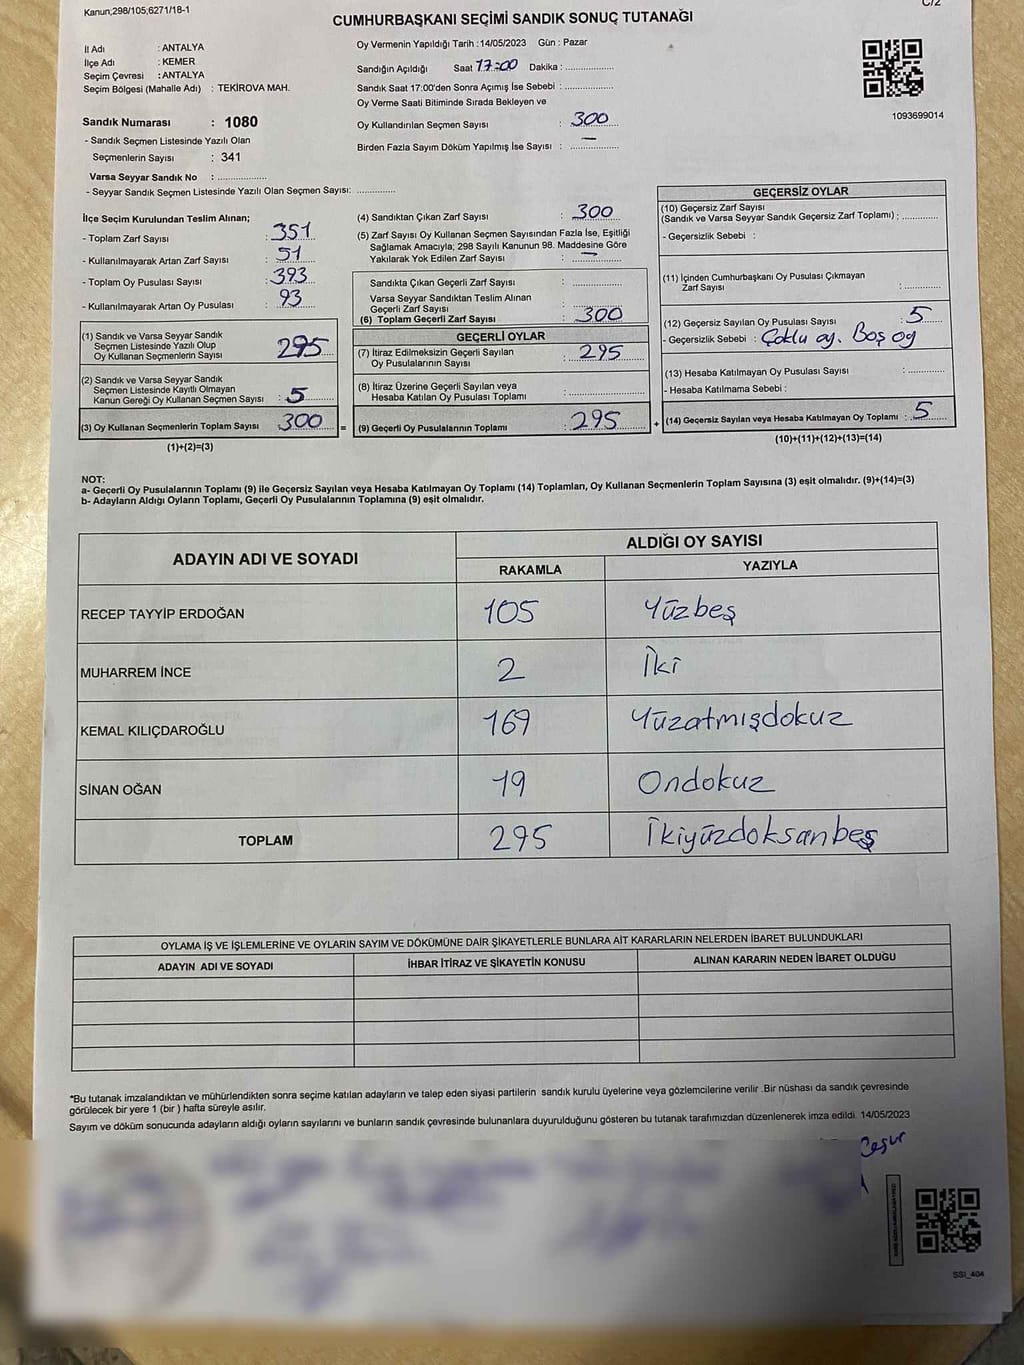 Kanun;298/105;6271/18-1
C/2
CUMHURBAŞKANI SEÇİMİ SANDIK SONUÇ TUTANAĞI
İl Adı : ANTALYA
İlçe Adı : KEMER
Seçim Çevresi : ANTALYA
Seçim Bölgesi (Mahalle Adı) : TEKİROVA MAH.
Sandık Numarası : 1080
- Sandık Seçmen Listesinde Yazılı Olan
Seçmenlerin Sayısı : 341
Varsa Seyyar Sandık No : ..................
- Seyyar Sandık Seçmen Listesinde Yazılı Olan Seçmen Sayısı: .............
Oy Vermenin Yapıldığı Tarih : 14/05/2023 Gün : Pazar
Sandığın Açıldığı Saat 17:00 Dakika : ..................
Sandık Saat 17:00'den Sonra Açımış İse Sebebi : ..................
Oy Verme Saati Bitiminde Sırada Bekleyen ve
Oy Kullandırılan Seçmen Sayısı : 300
Birden Fazla Sayım Döküm Yapılmış İse Sayısı : —
1093699014
İlçe Seçim Kurulundan Teslim Alınan;
- Toplam Zarf Sayısı : 351
- Kullanılmayarak Artan Zarf Sayısı : 51
- Toplam Oy Pusulası Sayısı : 393
- Kullanılmayarak Artan Oy Pusulası : 93
(1) Sandık ve Varsa Seyyar Sandık
Seçmen Listesinde Yazılı Olup
Oy Kullanan Seçmenlerin Sayısı 295
(2) Sandık ve Varsa Seyyar Sandık
Seçmen Listesinde Kayıtlı Olmayan
Kanun Gereği Oy Kullanan Seçmen Sayısı : 5
(3) Oy Kullanan Seçmenlerin Toplam Sayısı 300 =
(1)+(2)=(3)
(4) Sandıktan Çıkan Zarf Sayısı : 300
(5) Zarf Sayısı Oy Kullanan Seçmen Sayısından Fazla İse, Eşitliği
Sağlamak Amacıyla; 298 Sayılı Kanunun 98. Maddesine Göre
Yakılarak Yok Edilen Zarf Sayısı : —
Sandıkta Çıkan Geçerli Zarf Sayısı : ..................
Varsa Seyyar Sandıktan Teslim Alınan
Geçerli Zarf Sayısı : ..................
(6) Toplam Geçerli Zarf Sayısı : 300
GEÇERLİ OYLAR
(7) İtiraz Edilmeksizin Geçerli Sayılan
Oy Pusulalarının Sayısı : 295
(8) İtiraz Üzerine Geçerli Sayılan veya
Hesaba Katılan Oy Pusulası Toplamı : ..................
(9) Geçerli Oy Pusulalarının Toplamı : 295 +
GEÇERSİZ OYLAR
(10) Geçersiz Zarf Sayısı
(Sandık ve Varsa Seyyar Sandık Geçersiz Zarf Toplamı) : .............
- Geçersizlik Sebebi :
(11) İçinden Cumhurbaşkanı Oy Pusulası Çıkmayan
Zarf Sayısı : .............
(12) Geçersiz Sayılan Oy Pusulası Sayısı : 5
- Geçersizlik Sebebi : Çoklu oy. Boş oy
(13) Hesaba Katılmayan Oy Pusulası Sayısı : .............
- Hesaba Katılmama Sebebi :
(14) Geçersiz Sayılan veya Hesaba Katılmayan Oy Toplamı : 5
(10)+(11)+(12)+(13)=(14)
NOT:
a- Geçerli Oy Pusulalarının Toplamı (9) ile Geçersiz Sayılan veya Hesaba Katılmayan Oy Toplamı (14) Toplamları, Oy Kullanan Seçmenlerin Toplam Sayısına (3) eşit olmalıdır. (9)+(14)=(3)
b- Adayların Aldığı Oyların Toplamı, Geçerli Oy Pusulalarının Toplamına (9) eşit olmalıdır.
ADAYIN ADI VE SOYADI
ALDIĞI OY SAYISI
RAKAMLA YAZIYLA
RECEP TAYYİP ERDOĞAN 105 Yüzbeş
MUHARREM İNCE 2 İki
KEMAL KILIÇDAROĞLU 169 Yüzatmışdokuz
SİNAN OĞAN 19 Ondokuz
TOPLAM 295 İkiyüzdoksanbeş
OYLAMA İŞ VE İŞLEMLERİNE VE OYLARIN SAYIM VE DÖKÜMÜNE DAİR ŞİKAYETLERLE BUNLARA AİT KARARLARIN NELERDEN İBARET BULUNDUKLARI
ADAYIN ADI VE SOYADI İHBAR İTİRAZ VE ŞİKAYETİN KONUSU ALINAN KARARIN NEDEN İBARET OLDUĞU
*Bu tutanak imzalandıktan ve mühürlendikten sonra seçime katılan adayların ve talep eden siyasi partilerin sandık kurulu üyelerine veya gözlemcilerine verilir .Bir nüshası da sandık çevresinde
görülecek bir yere 1 (bir ) hafta süreyle asılır.
Sayım ve döküm sonucunda adayların aldığı oyların sayılarını ve bunların sandık çevresinde bulunanlara duyurulduğunu gösteren bu tutanak tarafımızdan düzenlenerek imza edildi. 14/05/2023
SSI_404